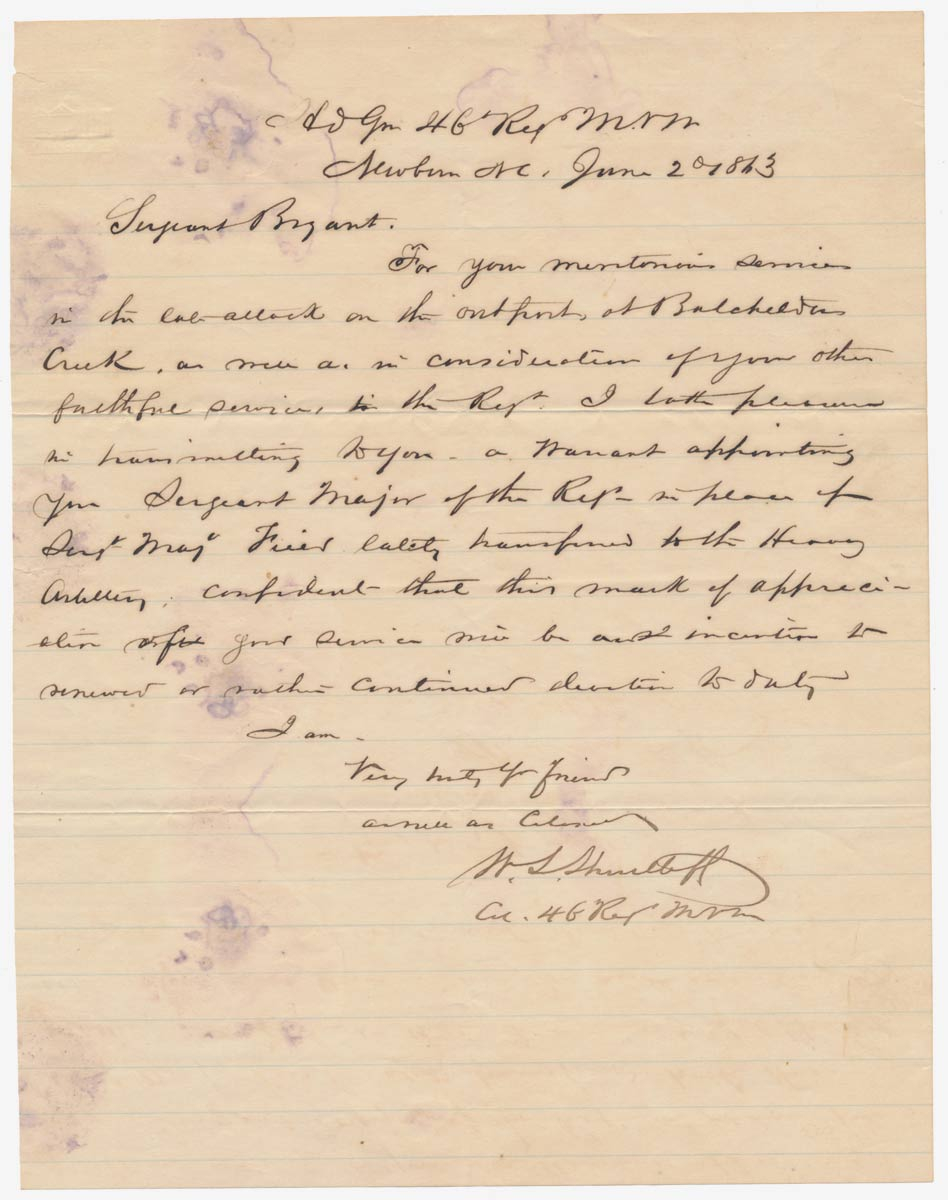 Hd Qrs 46t Regt M.V.M
Newbern NC. June 2d 1863
Sergeant Bryant.
For your meritorious services
in the late attack on the outposts at Batchelders
Creek, as well as in consideration of your other
faithful services to the Regt. I take pleasure
in transmitting to you a Warrant appointing
you Sergeant Major of the Regt in place of
Sergt Majr Field lately transferred to the Heavy
Artillery, confident that this mark of appreci-
ation of good service will be an incentive to
renewed or rather continued devotion to duty
I am
Very truly Yr friend
as well as Colonel
W. S. Shurtleff
Col. 46 Regt M.V.M